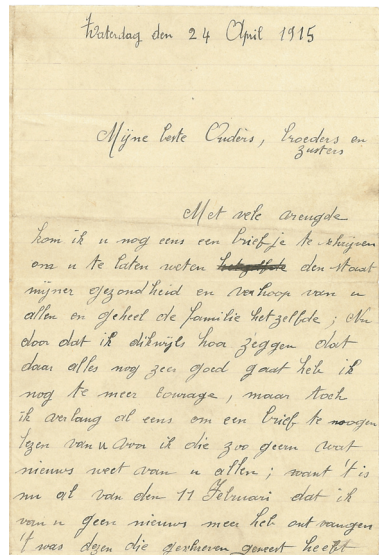 Zaterdag den 24 April 1915
Mijne beste Ouders, broeders en
zusters
Met vele vreugde
kom ik u nog eens een briefje te schrijven
om u te laten weten hetzelfde den staat
mijner gezondheid en verhoop van u
allen en geheel de familie hetzelfde ; Nu
door dat ik dikwijls hoor zeggen dat
daar alles nog zeer goed gaat heb ik
nog te meer courage , maar toch
ik verlang al eens om een brief te moogen
lezen van u voor ik die zoo geern wat
nieuws weet van u allen ; want 't is
nu al van den 11 Februari dat ik
van u geen nieuws meer heb ontvangen
't was dezen die geschreven geweest heeft